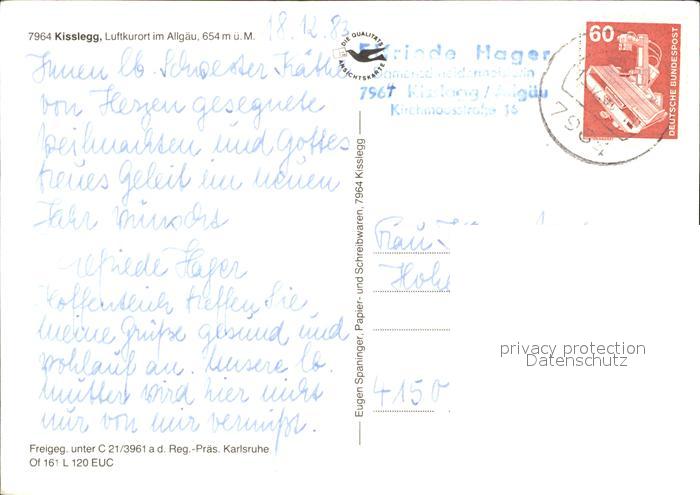 18.12.83
7964 Kisslegg, Luftkurort im Allgäu, 654 m ü. M.
DIE QUALITÄTS
ANSICHTSKARTE
Elfriede Hager
7967 Kisslegg / Allgäu
Kirchmoosstraße 16
60
DEUTSCHE BUNDESPOST
7964
Ihnen lb. Schwester Käthe
von Herzen gesegnete
Weihnachten und Gottes
treues Geleit im neuen
Jahr wünscht
Elfriede Hager
Hoffentlich treffen Sie
meine Grüße gesund und
wohlauf an. Unsere lb.
Mutter wird hier nicht
nur von mir vermißt.
Eugen Spaninger, Papier- und Schreibwaren, 7964 Kisslegg
Frau
Hohe
4150
privacy protection
Datenschutz
Freigeg. unter C 21/3961 a d. Reg.-Präs. Karlsruhe
Of 161 L 120 EUC